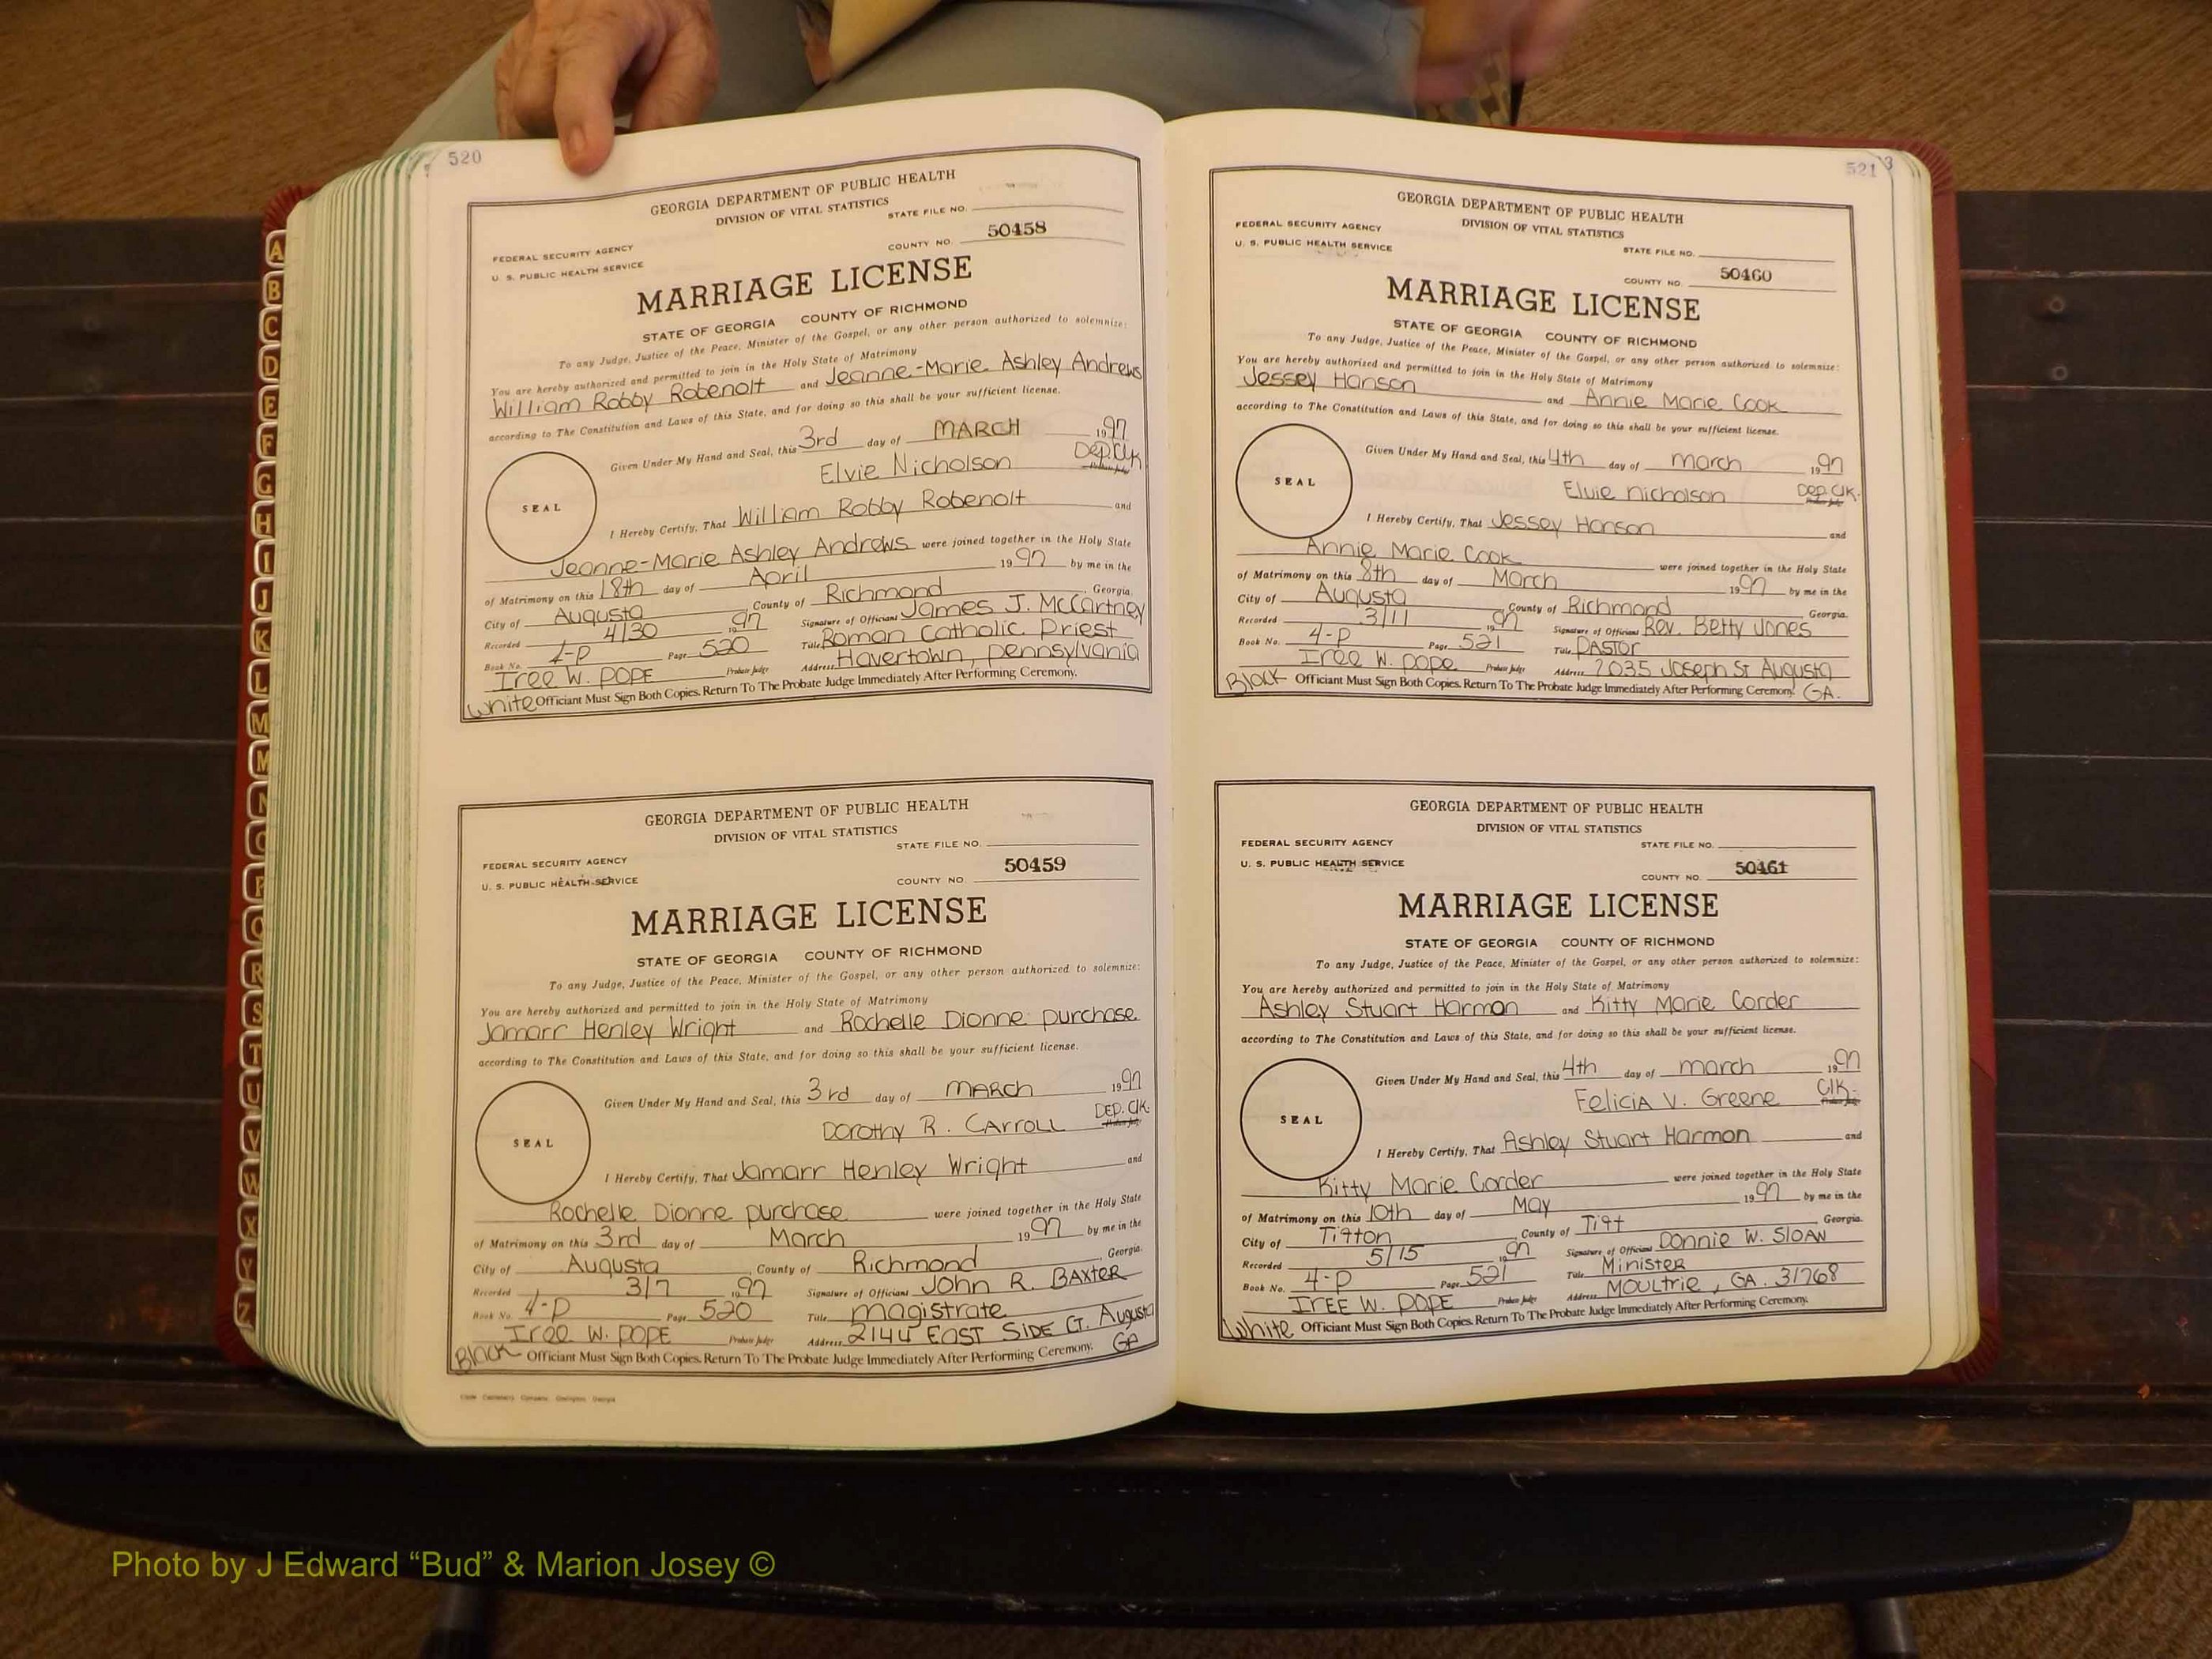 520
GEORGIA DEPARTMENT OF PUBLIC HEALTH
DIVISION OF VITAL STATISTICS
STATE FILE NO.
FEDERAL SECURITY AGENCY
COUNTY NO. 50458
U. S. PUBLIC HEALTH SERVICE
MARRIAGE LICENSE
STATE OF GEORGIA COUNTY OF RICHMOND
To any Judge, Justice of the Peace, Minister of the Gospel, or any other person authorized to solemnize:
You are hereby authorized and permitted to join in the Holy State of Matrimony
William Robby Robenolt and Jeanne-Marie Ashley Andrews
according to The Constitution and Laws of this State, and for doing so this shall be your sufficient license.
Given Under My Hand and Seal, this 3rd day of MARCH 1997
Elvie Nicholson Dep. Clk
Probate Judge
SEAL
I Hereby Certify, That William Robby Robenolt and
Jeanne-Marie Ashley Andrews were joined together in the Holy State
of Matrimony on this 18th day of April 1997 by me in the
City of Augusta, County of Richmond, Georgia.
Recorded 4/30 1997 Signature of Officiant James J. McCartney
Book No. 4-P Page 520 Title Roman Catholic Priest
Iree W. POPE Probate Judge Address Havertown, Pennsylvania
White Officiant Must Sign Both Copies. Return To The Probate Judge Immediately After Performing Ceremony.
GEORGIA DEPARTMENT OF PUBLIC HEALTH
DIVISION OF VITAL STATISTICS
STATE FILE NO.
FEDERAL SECURITY AGENCY
COUNTY NO. 50459
U. S. PUBLIC HEALTH SERVICE
MARRIAGE LICENSE
STATE OF GEORGIA COUNTY OF RICHMOND
To any Judge, Justice of the Peace, Minister of the Gospel, or any other person authorized to solemnize:
You are hereby authorized and permitted to join in the Holy State of Matrimony
Jamarr Henley Wright and Rochelle Dionne purchase
according to The Constitution and Laws of this State, and for doing so this shall be your sufficient license.
Given Under My Hand and Seal, this 3rd day of MARCH 1997
Dorothy R. CARROLL DEP. Clk.
Probate Judge
SEAL
I Hereby Certify, That Jamarr Henley Wright and
Rochelle Dionne purchase were joined together in the Holy State
of Matrimony on this 3rd day of March 1997 by me in the
City of Augusta, County of Richmond, Georgia.
Recorded 3/7 1997 Signature of Officiant John R. BAXTER
Book No. 4-P Page 520 Title magistrate
Iree W. POPE Probate Judge Address 2144 EAST SIDE CT. Augusta
GA
Black Officiant Must Sign Both Copies. Return To The Probate Judge Immediately After Performing Ceremony.
521 3
GEORGIA DEPARTMENT OF PUBLIC HEALTH
DIVISION OF VITAL STATISTICS
FEDERAL SECURITY AGENCY
STATE FILE NO.
U. S. PUBLIC HEALTH SERVICE
COUNTY NO. 50460
MARRIAGE LICENSE
STATE OF GEORGIA COUNTY OF RICHMOND
To any Judge, Justice of the Peace, Minister of the Gospel, or any other person authorized to solemnize:
You are hereby authorized and permitted to join in the Holy State of Matrimony
Jessey Hanson and Annie Marie Cook
according to The Constitution and Laws of this State, and for doing so this shall be your sufficient license.
Given Under My Hand and Seal, this 4th day of march 1997
Elvie nicholson Dep. Clk.
Probate Judge
SEAL
I Hereby Certify, That Jessey Hanson and
Annie Marie Cook were joined together in the Holy State
of Matrimony on this 8th day of March 1997 by me in the
City of Augusta, County of Richmond, Georgia.
Recorded 3/11 1997 Signature of Officiant Rev. Betty Jones
Book No. 4-P Page 521 Title PASTOR
Iree W. POPE Probate Judge Address 2035 Joseph St Augusta
Black Officiant Must Sign Both Copies. Return To The Probate Judge Immediately After Performing Ceremony. GA.
GEORGIA DEPARTMENT OF PUBLIC HEALTH
DIVISION OF VITAL STATISTICS
FEDERAL SECURITY AGENCY
STATE FILE NO.
U. S. PUBLIC HEALTH SERVICE
COUNTY NO. 50461
MARRIAGE LICENSE
STATE OF GEORGIA COUNTY OF RICHMOND
To any Judge, Justice of the Peace, Minister of the Gospel, or any other person authorized to solemnize:
You are hereby authorized and permitted to join in the Holy State of Matrimony
Ashley Stuart Harmon and Kitty Marie Corder
according to The Constitution and Laws of this State, and for doing so this shall be your sufficient license.
Given Under My Hand and Seal, this 4th day of march 1997
Felicia V. Greene Clk.
Probate Judge
SEAL
I Hereby Certify, That Ashley Stuart Harmon and
Kitty Marie Corder were joined together in the Holy State
of Matrimony on this 10th day of May 1997 by me in the
City of Tifton, County of Tift, Georgia.
Recorded 5/15 1997 Signature of Officiant Donnie W. SLOAN
Book No. 4-P Page 521 Title Minister
IREE W. POPE Probate Judge Address MOULTrie, GA. 31768
White Officiant Must Sign Both Copies. Return To The Probate Judge Immediately After Performing Ceremony.
A
B
C
D
E
F
G
H
I
J
K
L
M
Mc
N
O
P
Q
R
S
T
U
V
W
X
Y
Z
Photo by J Edward “Bud” & Marion Josey ©